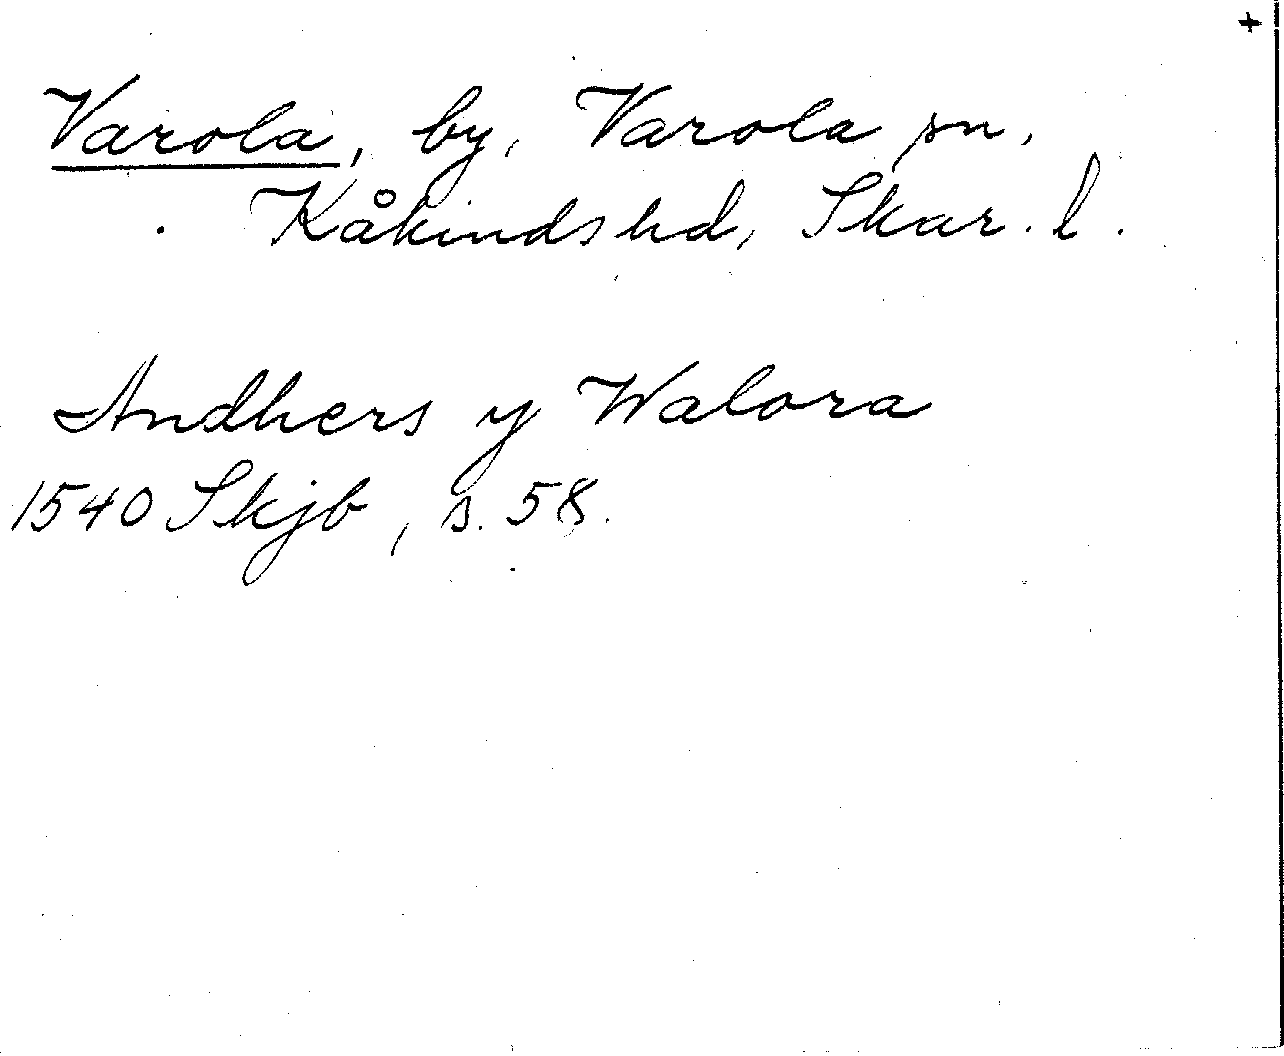 +
Varola, by, Varola sn,
Kåkinds hd, Skar. l.
Andhers y Walora
1540 Skjb, s. 58.